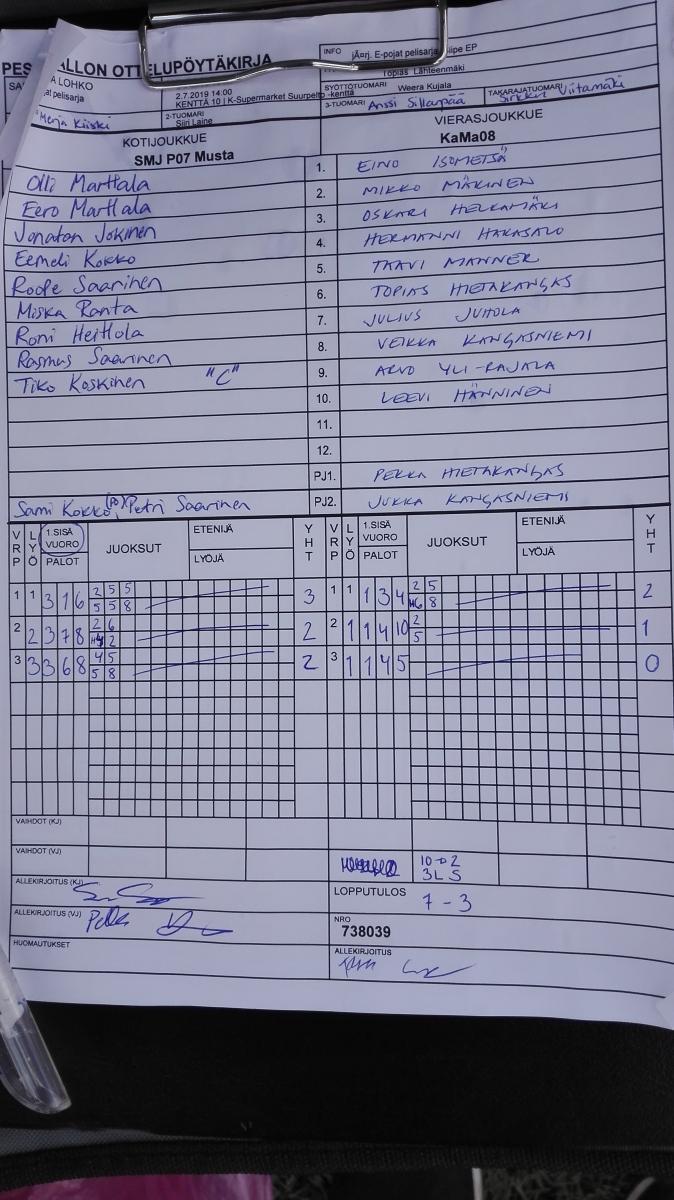 PES
ALLON OTTELUPÖYTÄKIRJA
A LOHKO
at pelisarja
2.7.2019 14:00
KENTTÄ 10 | K-Supermarket Suurpelto -kenttä
INFO
järj. E-pojat pelisarja
iipe EP
Topias Lähteenmäki
SYÖTTÖTUOMARI
Weera Kujala
TAKARAJATUOMARI
Sirkku Viitamäki
Merja Kiiski
2-TUOMARI
Siiri Laine
3-TUOMARI
Anssi Sillanpää
KOTIJOUKKUE
SMJ P07 Musta
VIERASJOUKKUE
KaMa08
Olli Marttala 1. EINO ISOMETSÄ
Eero Marttala 2. MIKKO MÄKINEN
Jonatan Jokinen 3. OSKARI HELKAMÄKI
Eemeli Kokko 4. HERMANNI HAKASALO
Roope Saarinen 5. TAAVI MANNER
Miska Ranta 6. TOPIAS HIETAKANGAS
Roni Heittola 7. JULIUS JUHOLA
Rasmus Saarinen 8. VEIKKA KANGASNIEMI
Tiko Koskinen "C" 9. ARVO YLI-RAJALA
10. LEEVI HÄNNINEN
11.
12.
PJ1. PEKKA HIETAKANGAS
Sami Kokko, Petri Saarinen PJ2. JUKKA KANGASNIEMI
VRP LYÖ 1.SISÄ VUORO PALOT JUOKSUT ETENIJÄ LYÖJÄ YHT VRP LYÖ 1.SISÄ VUORO PALOT JUOKSUT ETENIJÄ LYÖJÄ YHT
1 1 3 1 6 2 5 5 3 1 1 1 3 4 2 5 2
5 5 8 6 8
2 2 3 7 8 2 6 2 2 1 1 4 10 2 1
2 5
3 3 3 6 8 4 5 2 3 1 1 4 5 0
5 8
VAIHDOT (KJ)
VAIHDOT (VJ)
3L5
ALLEKIRJOITUS (KJ)
LOPPUTULOS
7 - 3
ALLEKIRJOITUS (VJ)
NRO
738039
HUOMAUTUKSET
ALLEKIRJOITUS